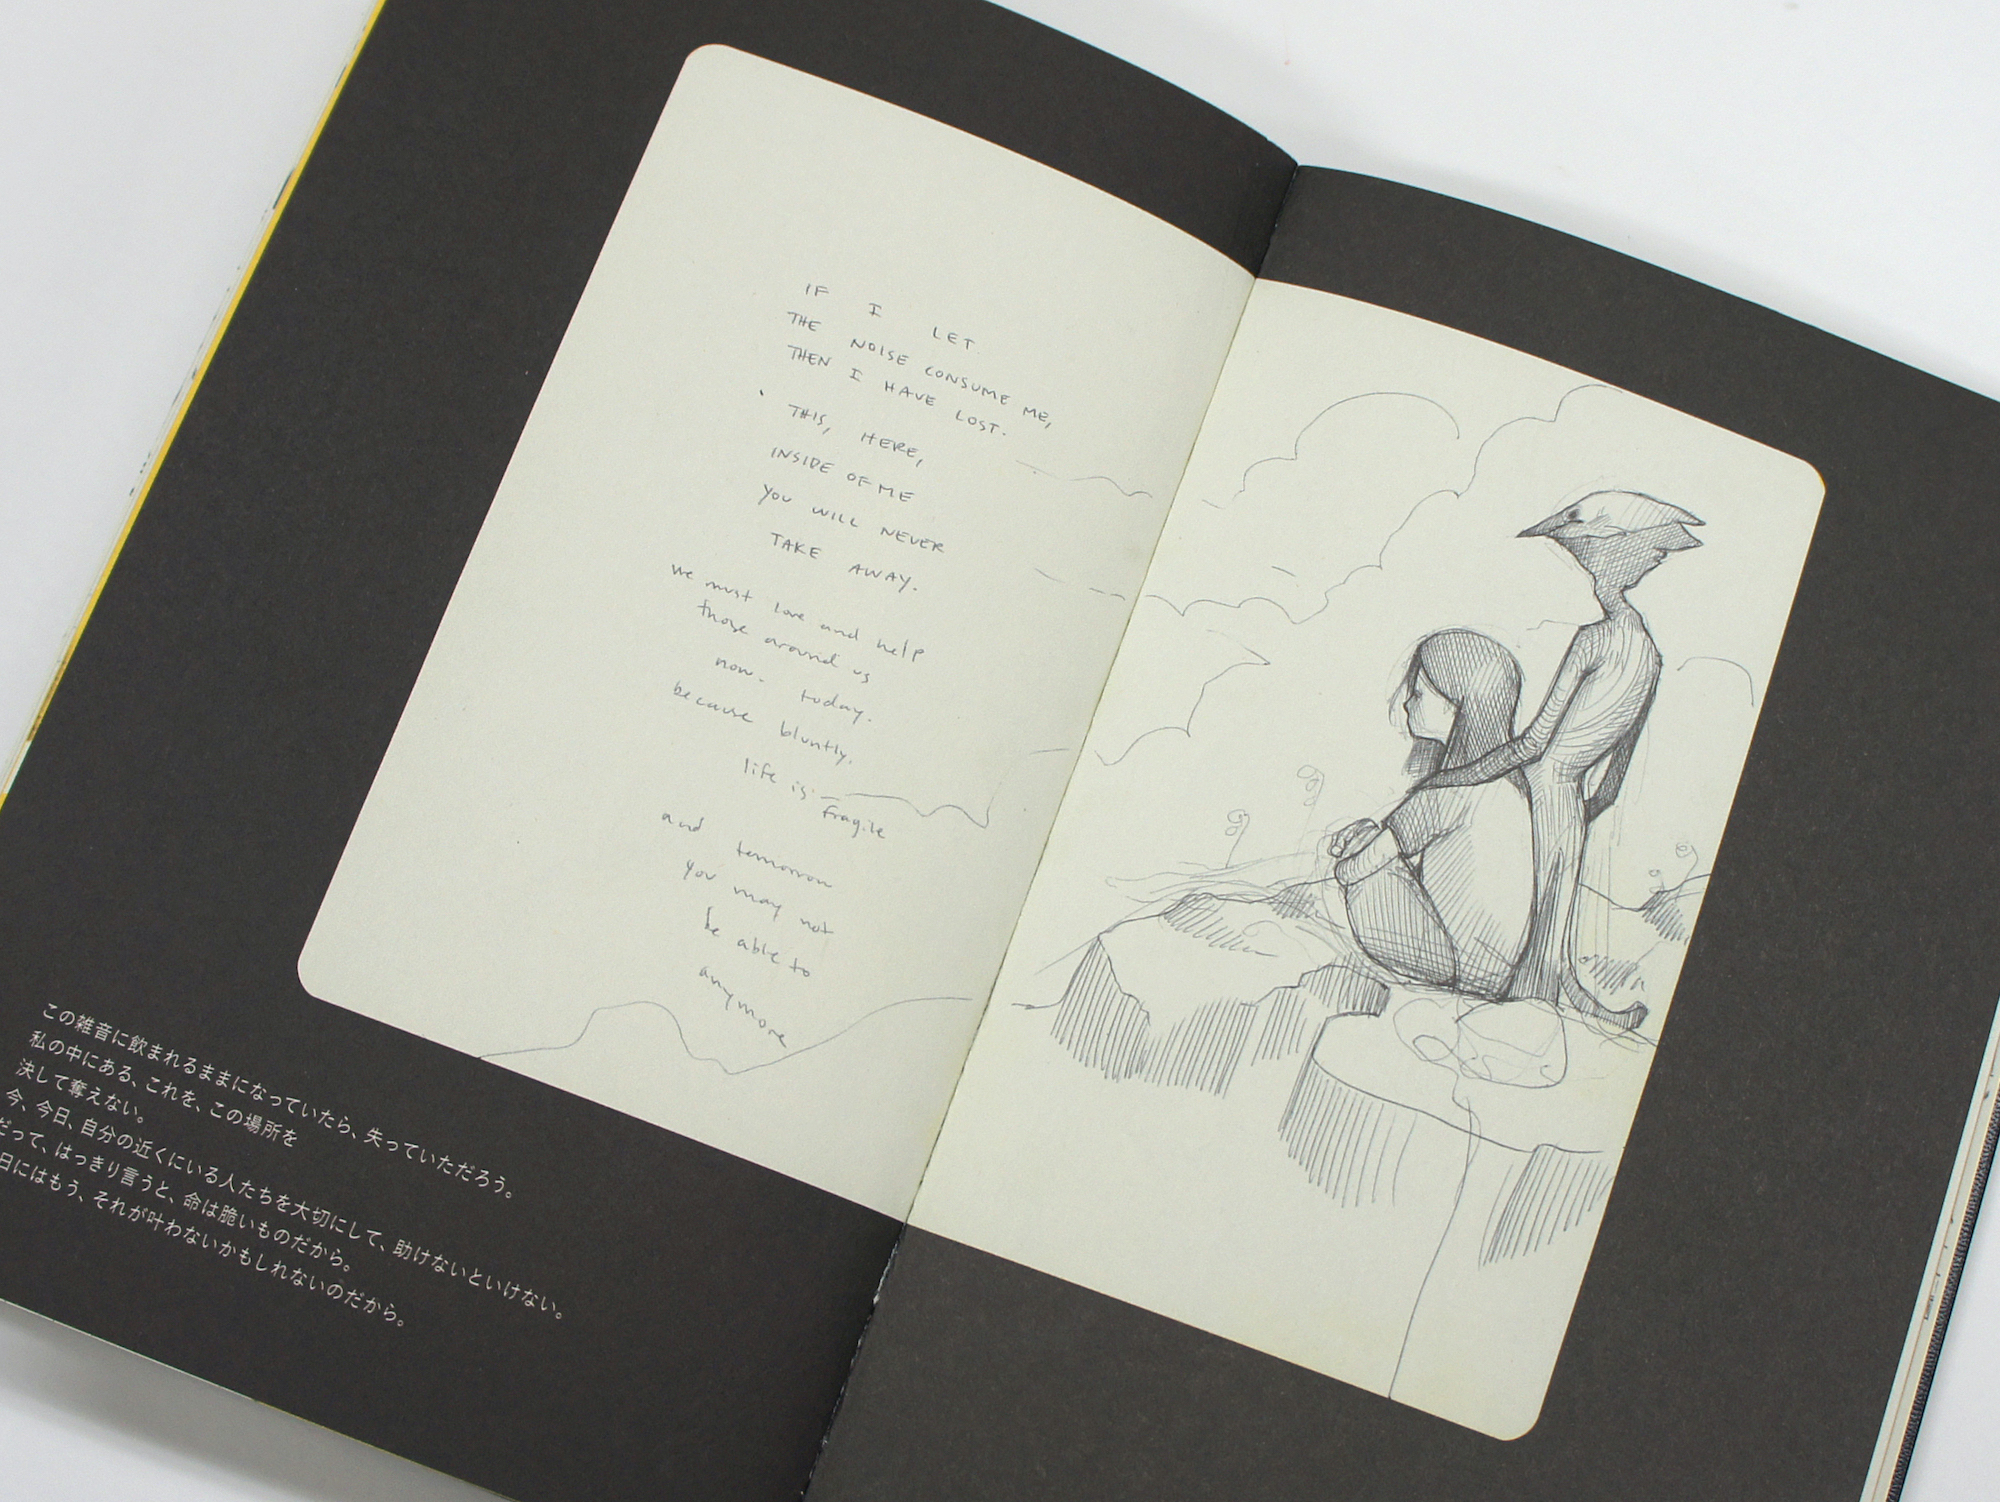 IF I LET
THE NOISE CONSUME ME,
THEN I HAVE LOST.
THIS, HERE,
INSIDE OF ME
YOU WILL NEVER
TAKE AWAY.
we must love and help
those around us
now. today.
because bluntly.
life is fragile
and
tomorrow
you may not
be able to
anymore
この雑音に飲まれるままになっていたら、失っていただろう。
私の中にある、これを、この場所を
決して奪えない。
今、今日、自分の近くにいる人たちを大切にして、助けないといけない。
だって、はっきり言うと、命は脆いものだから。
日にはもう、それが叶わないかもしれないのだから。